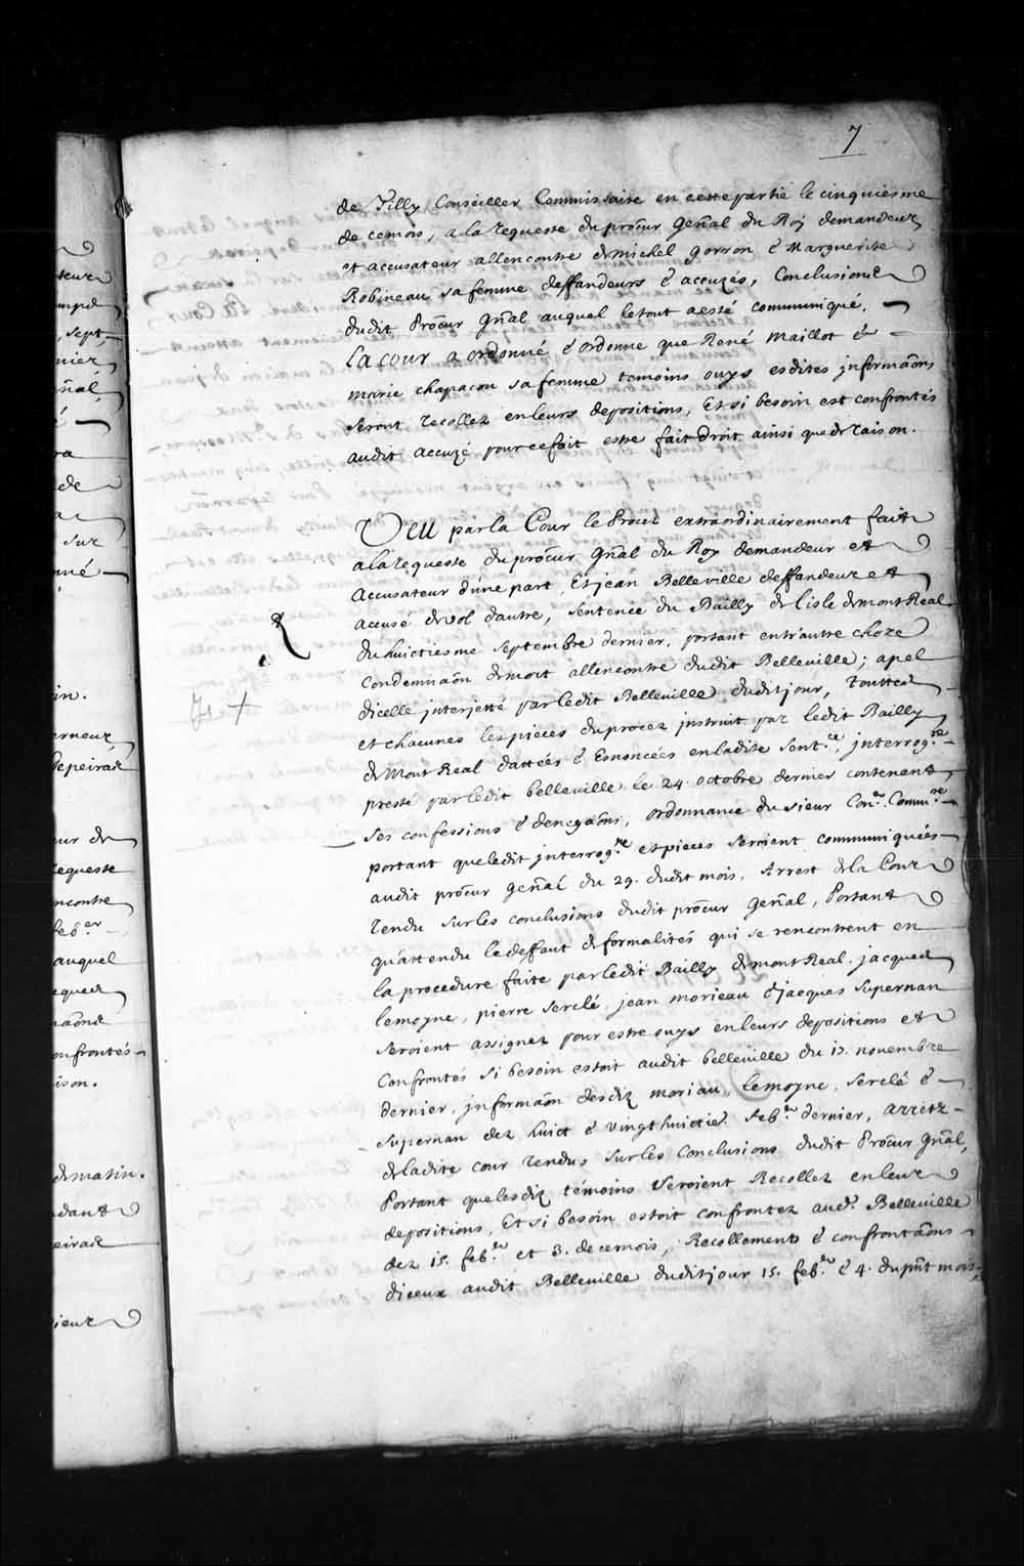 7
de Tilly Conseiller Commissaire en cette partie le cinquiesme
de ce mois, a la requeste du procur̃ Gen̄al du Roy demandeur
et accusateur allencontre de michel gorron & Marguerite
Robineau sa femme deffandeurs & accuzés, Conclusions
dudit Procur̃ Gñal auquel le tout a esté communiqué.
La Cour a ordonné & ordonne que René Maillot &
marie chapacou sa femme temoins ouys esdites jnformaõns
seront recollez en leurs depositions, Et si besoin est confrontés
audit accuzé pour ce fait estre fait droit ainsi que de raison.
Veu par la Cour le Procez extraordinairement fait
a la requeste du procur̃ gñal du Roy demandeur et
Accusateur d'une part, Et jean Belleville deffandeur et
accusé de vol d'autre, Sentence du Bailly de l'isle de mont Real
du huictiesme Septembre dernier, portant entr'autre choze
condemnaõn de mort allencontre dudit Belleville; apel
d'icelle jnterjetté par ledit Belleville dudit jour, touttes
et chacunes les pieces du procez jnstruit par ledit Bailly
de Mont Real dattées & Enoncées en ladite sent.ce, jnterrog.re
presté par ledit belleville le 24. octobre dernier contenant
ses confessions & denegaõns, ordonnance du sieur Con.er Comm.re
portant que ledit jnterrog.re et pieces seroient communiquées
audit procur̃ gen̄al du 29. dudit mois, Arrest de la Cour
rendu sur les conclusions dudit procur̃ gen̄al, Portant
qu'attendu le deffaut de formalités qui se rencontrent en
la procedure faite par ledit Bailly de mont Real, jacques
lemoyne, pierre Serelé, jean morieau & jacques Supernan
seroient assignez pour estre ouys en leurs depositions et
Confrontés si besoin estoit audit belleville du 13. novembre
dernier, jnformaõn desdiz moriau, lemoyne, Serelé &
Supernan dez huict & vingt huictie feb.er dernier, arretz
de ladite cour rendus sur les Conclusions dudit Procur̃ gñal,
Portant que lesdiz témoins seroient Recollez en leur
depositions, Et si besoin estoit confrontez aud.t Belleville
dez 15. feb.er et 3. de ce mois, Recollement & confrontaõns
d'iceux audit Belleville dudit jour 15. feb.er & 4. du pñt mois